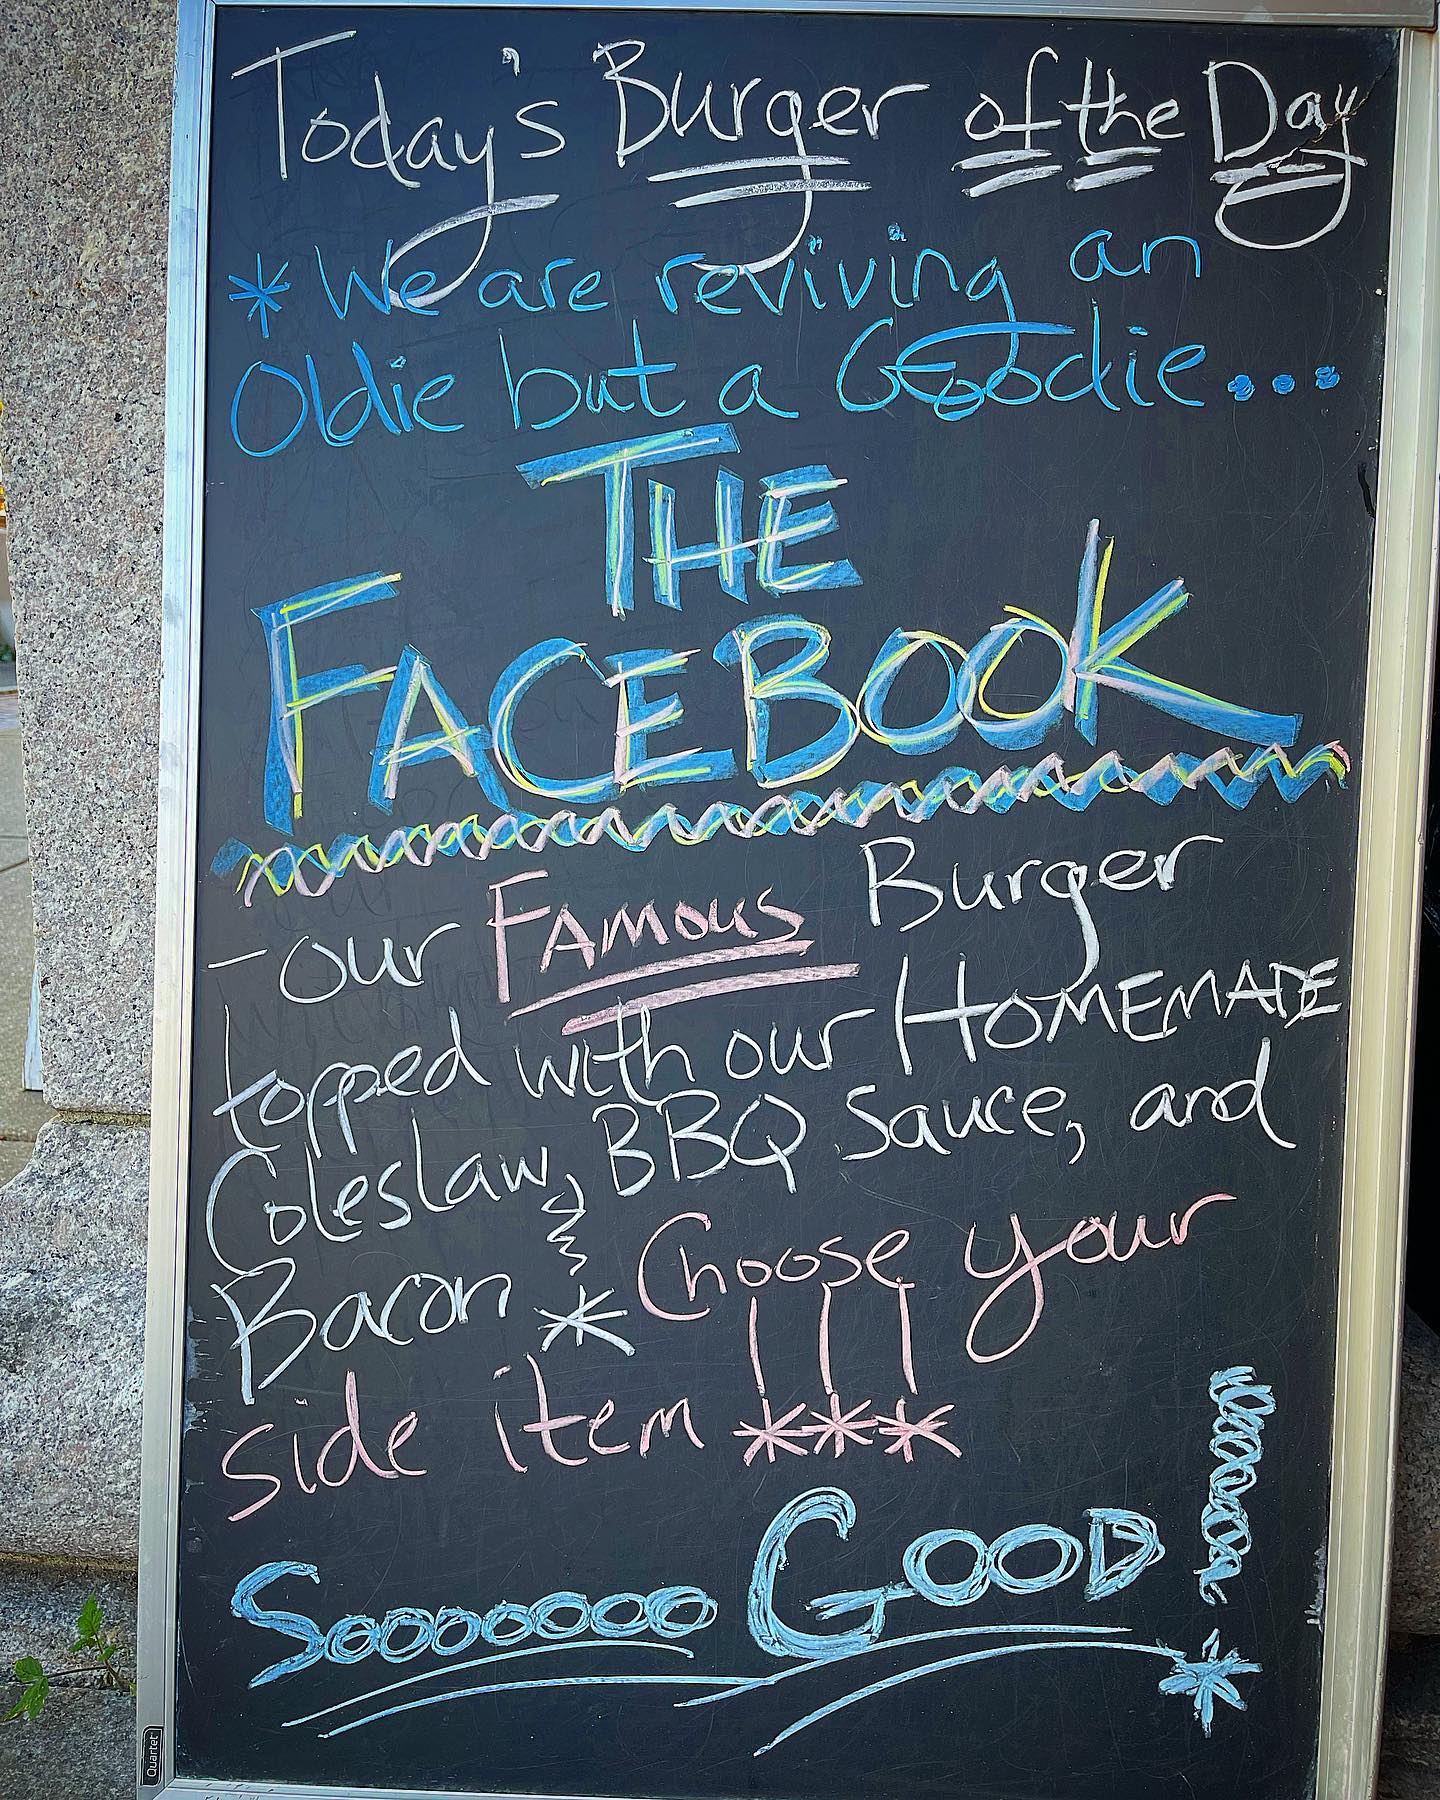 Today's Burger of the Day
* We are reviving an
Oldie but a Goodie...
THE
FACEBOOK
- our FAMOUS Burger
topped with our HOMEMADE
Coleslaw, BBQ Sauce, and
Bacon! * Choose your
side item !!!
Sooooooo GOOD!
Quartet